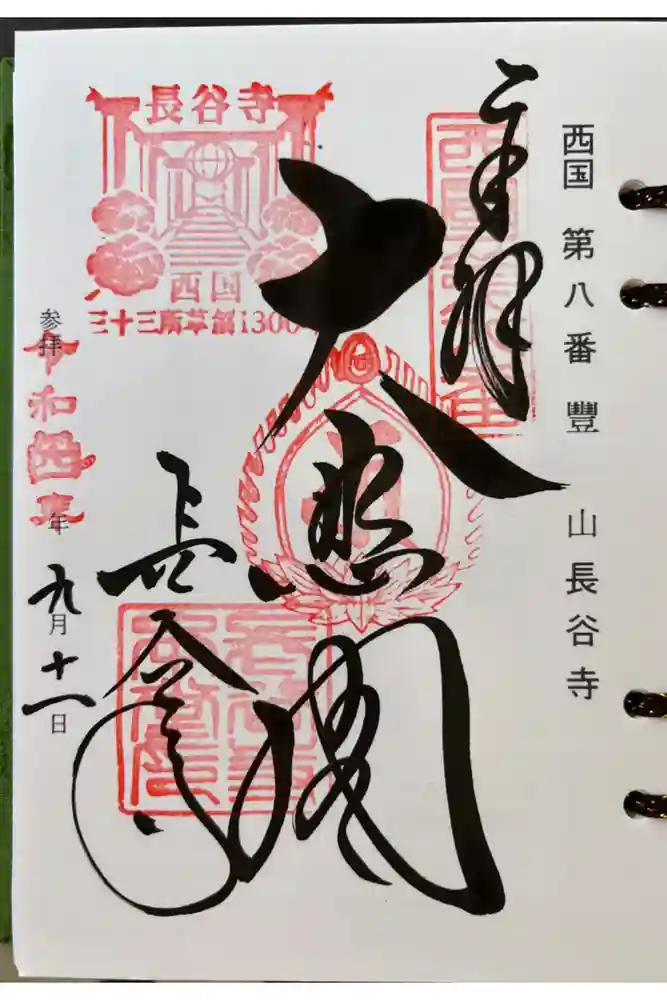 西国 第八番 豐 山長谷寺
奉拝
西國第八番
大悲閣
長谷寺
長谷寺
西国
三十三所草創1300
参拝
令和四年
年
九月十一日